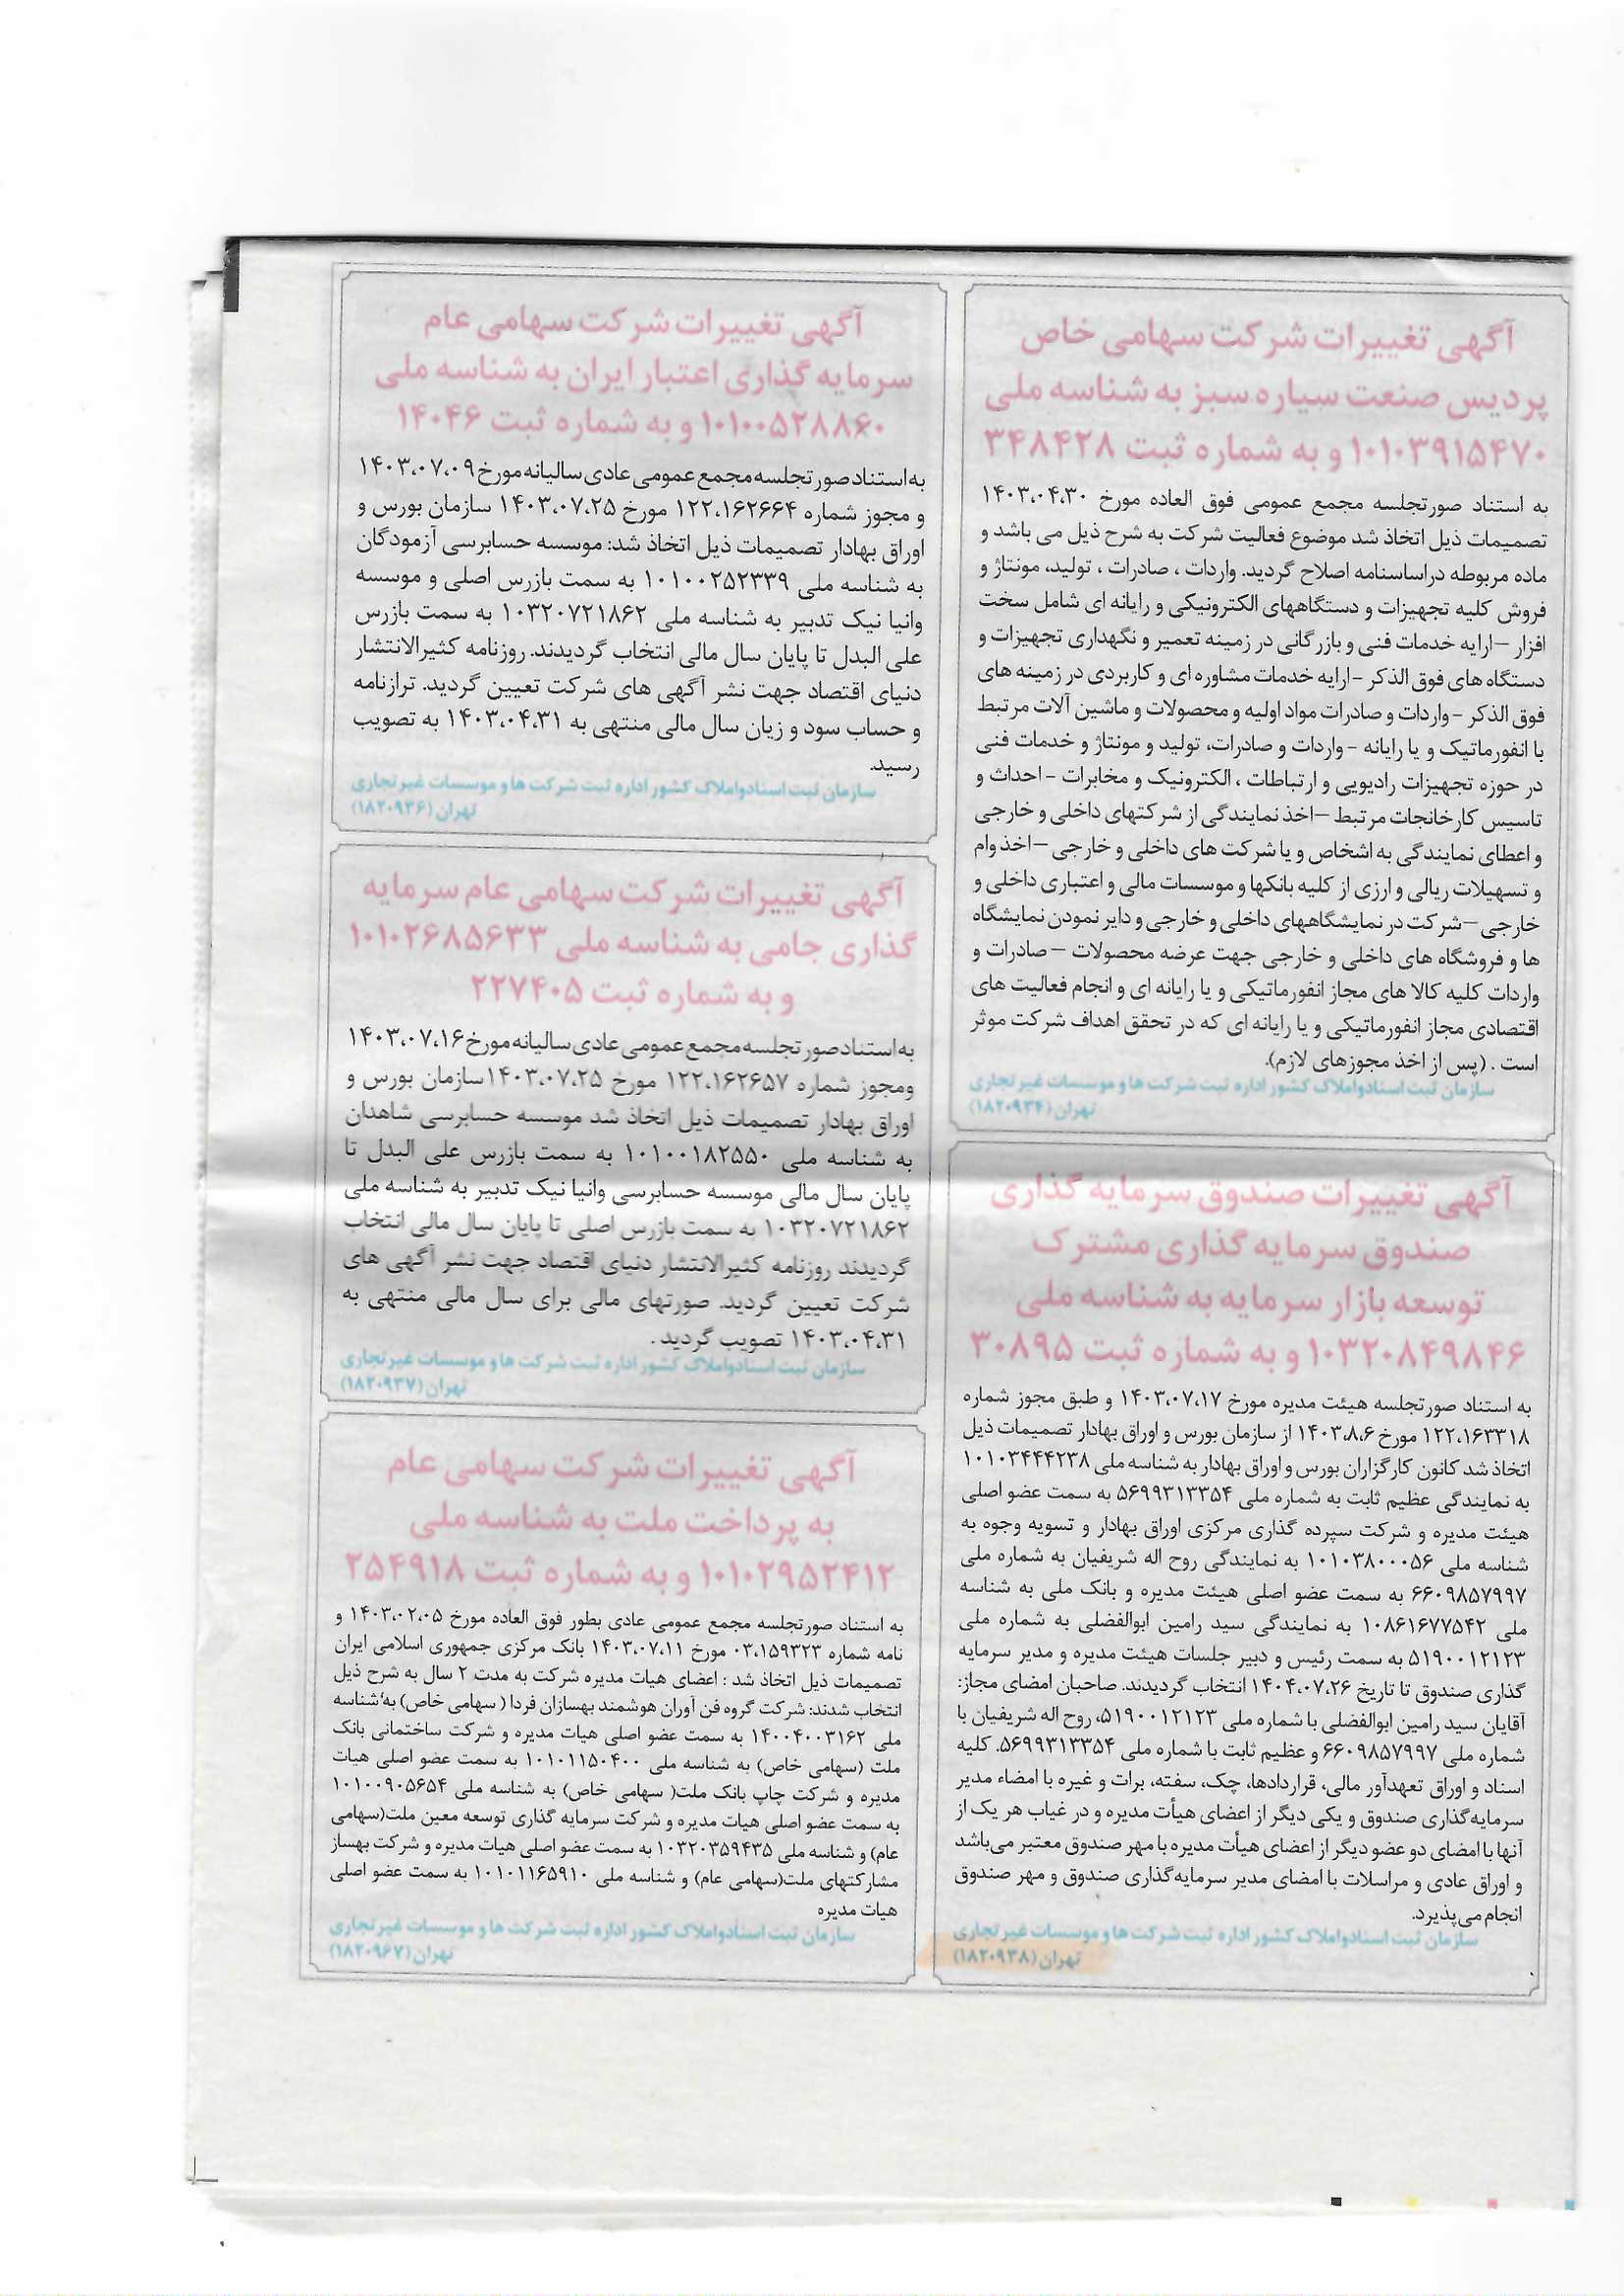 آگهی تغییرات شرکت سهامی خاص
پردیس صنعت سیاره سبز به شناسه ملی
۱۰۱۰۳۹۱۵۴۷۰ و به شماره ثبت ۳۴۸۴۲۸
به استناد صورتجلسه مجمع عمومی فوق العاده مورخ ۱۴۰۳،۰۴،۳۰
تصمیمات ذیل اتخاذ شد موضوع فعالیت شرکت به شرح ذیل می باشد و
ماده مربوطه دراساسنامه اصلاح گردید. واردات ، صادرات ، تولید، مونتاژ و
فروش کلیه تجهیزات و دستگاههای الکترونیکی و رایانه ای شامل سخت
افزار –ارایه خدمات فنی و بازرگانی در زمینه تعمیر و نگهداری تجهیزات و
دستگاه های فوق الذکر -ارایه خدمات مشاوره ای و کاربردی در زمینه های
فوق الذکر -واردات و صادرات مواد اولیه و محصولات و ماشین آلات مرتبط
با انفورماتیک و یا رایانه -واردات و صادرات، تولید و مونتاژ و خدمات فنی
در حوزه تجهیزات رادیویی و ارتباطات ، الکترونیک و مخابرات -احداث و
تاسیس کارخانجات مرتبط –اخذ نمایندگی از شرکتهای داخلی و خارجی
و اعطای نمایندگی به اشخاص و یا شرکت های داخلی و خارجی –اخذ وام
و تسهیلات ریالی و ارزی از کلیه بانکها و موسسات مالی و اعتباری داخلی و
خارجی –شرکت در نمایشگاههای داخلی و خارجی و دایر نمودن نمایشگاه
ها و فروشگاه های داخلی و خارجی جهت عرضه محصولات –صادرات و
واردات کلیه کالا های مجاز انفورماتیکی و یا رایانه ای و انجام فعالیت های
اقتصادی مجاز انفورماتیکی و یا رایانه ای که در تحقق اهداف شرکت موثر
است . (پس از اخذ مجوزهای لازم).
سازمان ثبت اسنادواملاک کشور اداره ثبت شرکت ها و موسسات غیرتجاری
تهران (۱۸۲۰۹۳۴)
آگهی تغییرات صندوق سرمایه گذاری
صندوق سرمایه گذاری مشترک
توسعه بازار سرمایه به شناسه ملی
۱۰۳۲۰۸۴۹۸۴۶ و به شماره ثبت ۳۰۸۹۵
به استناد صورتجلسه هیئت مدیره مورخ ۱۴۰۳،۰۷،۱۷ و طبق مجوز شماره
۱۲۲،۱۶۳۳۱۸ مورخ ۱۴۰۳،۸،۶ از سازمان بورس و اوراق بهادار تصمیمات ذیل
اتخاذ شد کانون کارگزاران بورس و اوراق بهادار به شناسه ملی ۱۰۱۰۳۴۴۴۲۳۸
به نمایندگی عظیم ثابت به شماره ملی ۵۶۹۹۳۱۳۳۵۴ به سمت عضو اصلی
هیئت مدیره و شرکت سپرده گذاری مرکزی اوراق بهادار و تسویه وجوه به
شناسه ملی ۱۰۱۰۳۸۰۰۰۵۶ به نمایندگی روح اله شریفیان به شماره ملی
۶۶۰۹۸۵۷۹۹۷ به سمت عضو اصلی هیئت مدیره و بانک ملی به شناسه
ملی ۱۰۸۶۱۶۷۷۵۴۲ به نمایندگی سید رامین ابوالفضلی به شماره ملی
۵۱۹۰۰۱۲۱۲۳ به سمت رئیس و دبیر جلسات هیئت مدیره و مدیر سرمایه
گذاری صندوق تا تاریخ ۱۴۰۴،۰۷،۲۶ انتخاب گردیدند. صاحبان امضای مجاز:
آقایان سید رامین ابوالفضلی با شماره ملی ۵۱۹۰۰۱۲۱۲۳، روح اله شریفیان با
شماره ملی ۶۶۰۹۸۵۷۹۹۷ و عظیم ثابت با شماره ملی ۵۶۹۹۳۱۳۳۵۴. کلیه
اسناد و اوراق تعهدآور مالی، قراردادها، چک، سفته، برات و غیره با امضاء مدیر
سرمایه‌گذاری صندوق و یکی دیگر از اعضای هیأت مدیره و در غیاب هر یک از
آنها با امضای دو عضو دیگر از اعضای هیأت مدیره با مهر صندوق معتبر می‌باشد
و اوراق عادی و مراسلات با امضای مدیر سرمایه‌گذاری صندوق و مهر صندوق
انجام می‌پذیرد.
سازمان ثبت اسنادواملاک کشور اداره ثبت شرکت ها و موسسات غیرتجاری
تهران (۱۸۲۰۹۳۸)
آگهی تغییرات شرکت سهامی عام
سرمایه گذاری اعتبار ایران به شناسه ملی
۱۰۱۰۰۵۲۸۸۶۰ و به شماره ثبت ۱۴۰۴۶
به استناد صورتجلسه مجمع عمومی عادی سالیانه مورخ ۱۴۰۳،۰۷،۰۹
و مجوز شماره ۱۲۲،۱۶۲۶۶۴ مورخ ۱۴۰۳،۰۷،۲۵ سازمان بورس و
اوراق بهادار تصمیمات ذیل اتخاذ شد: موسسه حسابرسی آزمودگان
به شناسه ملی ۱۰۱۰۰۲۵۲۳۳۹ به سمت بازرس اصلی و موسسه
وانیا نیک تدبیر به شناسه ملی ۱۰۳۲۰۷۲۱۸۶۲ به سمت بازرس
علی البدل تا پایان سال مالی انتخاب گردیدند. روزنامه کثیرالانتشار
دنیای اقتصاد جهت نشر آگهی های شرکت تعیین گردید. ترازنامه
و حساب سود و زیان سال مالی منتهی به ۱۴۰۳،۰۴،۳۱ به تصویب
رسید.
سازمان ثبت اسنادواملاک کشور اداره ثبت شرکت ها و موسسات غیرتجاری
تهران (۱۸۲۰۹۳۶)
آگهی تغییرات شرکت سهامی عام سرمایه
گذاری جامی به شناسه ملی ۱۰۱۰۲۶۸۵۶۳۳
و به شماره ثبت ۲۲۷۴۰۵
به استناد صورتجلسه مجمع عمومی عادی سالیانه مورخ ۱۴۰۳،۰۷،۱۶
ومجوز شماره ۱۲۲،۱۶۲۶۵۷ مورخ ۱۴۰۳،۰۷،۲۵سازمان بورس و
اوراق بهادار تصمیمات ذیل اتخاذ شد موسسه حسابرسی شاهدان
به شناسه ملی ۱۰۱۰۰۱۸۲۵۵۰ به سمت بازرس علی البدل تا
پایان سال مالی موسسه حسابرسی وانیا نیک تدبیر به شناسه ملی
۱۰۳۲۰۷۲۱۸۶۲ به سمت بازرس اصلی تا پایان سال مالی انتخاب
گردیدند روزنامه کثیرالانتشار دنیای اقتصاد جهت نشر آگهی های
شرکت تعیین گردید. صورتهای مالی برای سال مالی منتهی به
۱۴۰۳،۰۴،۳۱ تصویب گردید.
سازمان ثبت اسنادواملاک کشور اداره ثبت شرکت ها و موسسات غیرتجاری
تهران (۱۸۲۰۹۳۷)
آگهی تغییرات شرکت سهامی عام
به پرداخت ملت به شناسه ملی
۱۰۱۰۲۹۵۲۴۱۲ و به شماره ثبت ۲۵۴۹۱۸
به استناد صورتجلسه مجمع عمومی عادی بطور فوق العاده مورخ ۱۴۰۳،۰۲،۰۵ و
نامه شماره ۰۳،۱۵۹۳۲۳ مورخ ۱۴۰۳،۰۷،۱۱ بانک مرکزی جمهوری اسلامی ایران
تصمیمات ذیل اتخاذ شد : اعضای هیات مدیره شرکت به مدت ۲ سال به شرح ذیل
انتخاب شدند: شرکت گروه فن آوران هوشمند بهسازان فردا ( سهامی خاص) به شناسه
ملی ۱۴۰۰۴۰۰۳۱۶۲ به سمت عضو اصلی هیات مدیره و شرکت ساختمانی بانک
ملت (سهامی خاص) به شناسه ملی ۱۰۱۰۱۱۵۰۴۰۰ به سمت عضو اصلی هیات
مدیره و شرکت چاپ بانک ملت( سهامی خاص) به شناسه ملی ۱۰۱۰۰۹۰۵۶۵۴
به سمت عضو اصلی هیات مدیره و شرکت سرمایه گذاری توسعه معین ملت(سهامی
عام) و شناسه ملی ۱۰۳۲۰۳۵۹۴۳۵ به سمت عضو اصلی هیات مدیره و شرکت بهساز
مشارکتهای ملت(سهامی عام) و شناسه ملی ۱۰۱۰۱۱۶۵۹۱۰ به سمت عضو اصلی
هیات مدیره
سازمان ثبت اسنادواملاک کشور اداره ثبت شرکت ها و موسسات غیرتجاری
تهران (۱۸۲۰۹۶۷)